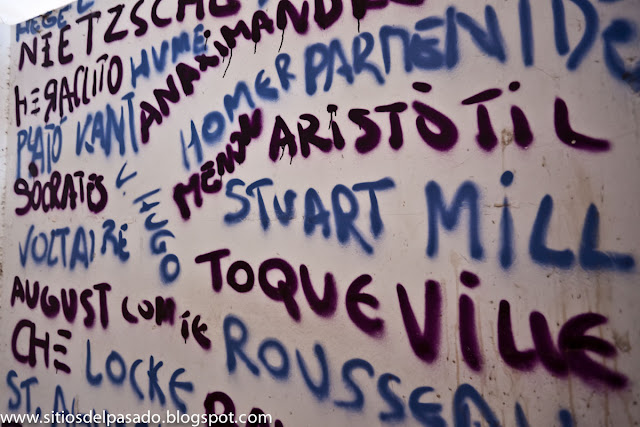 HEGEL
NIETZSCHE
HERACLITO HUME ANAXIMANDRE
PLATÓ KANT HOMER PARMENIDE
SÒCRATES ARISTÒTIL
V. HUGO STUART MILL
VOLTAIRE
AUGUST COMTE TOQUEVILLE
CHE LOCKE ROUSSEAU
ST.
www.sitiosdelpasado.blogspot.com